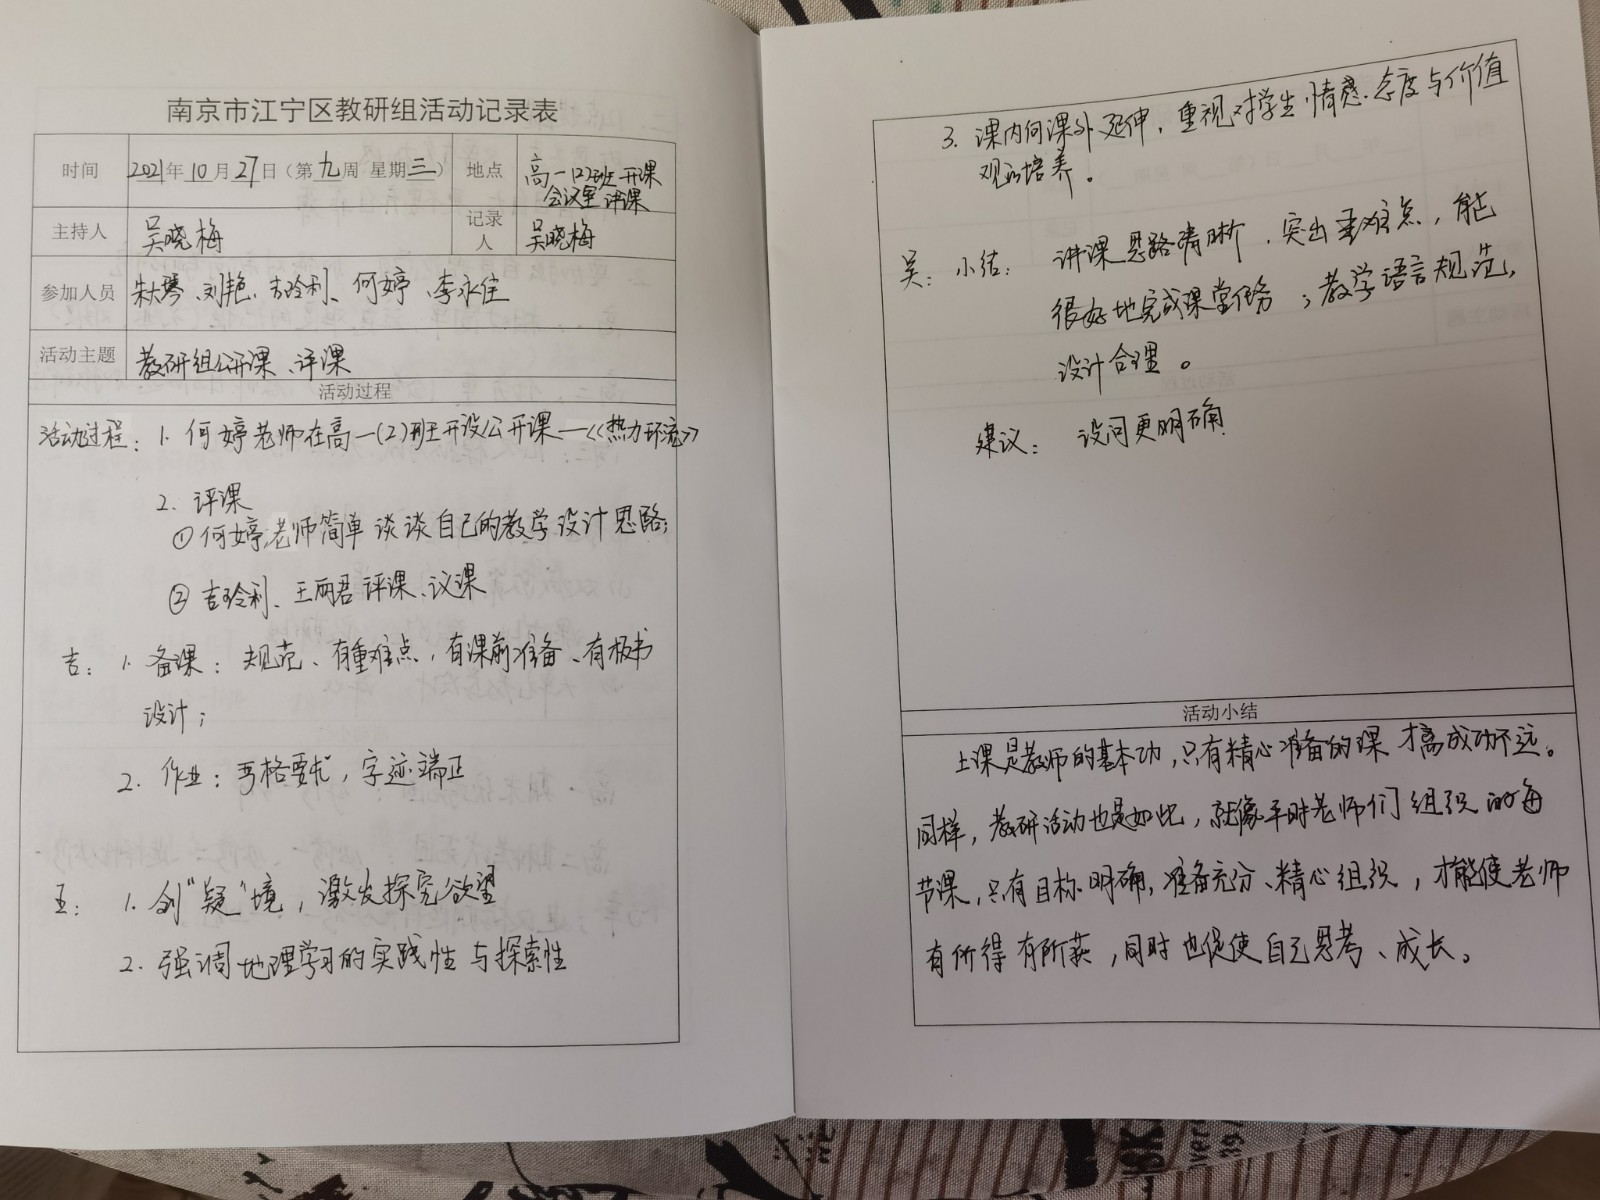 南京市江宁区教研组活动记录表
时间 2021年10月27日(第九周 星期三) 地点 高一(2)班开课
会议室评课
主持人 吴晓梅 记录人 吴晓梅
参加人员 朱琴、刘艳、吉玲利、何婷、李永佳
活动主题 教研组公开课、评课
活动过程
活动过程：1. 何婷老师在高一(2)班开设公开课—《热力环流》
2. 评课
①何婷老师简单谈谈自己的教学设计思路；
②吉玲利、王丽君评课、议课
吉：1. 备课：规范、有重难点，有课前准备、有板书
设计；
2. 作业：严格要求，字迹端正
王：1. 创“疑”境，激发探究欲望
2. 强调地理学习的实践性与探索性
3. 课内向课外延伸，重视对学生情感、态度与价值
观的培养。
吴：小结：讲课思路清晰，突出重难点，能
很好地完成课堂任务；教学语言规范，
设计合理。
建议：设问更明确
活动小结
上课是教师的基本功，只有精心准备的课才离成功不远。
同样，教研活动也是如此，就像平时老师们组织的每
节课，只有目标明确，准备充分、精心组织，才能使老师
有所得有所获，同时也促使自己思考、成长。